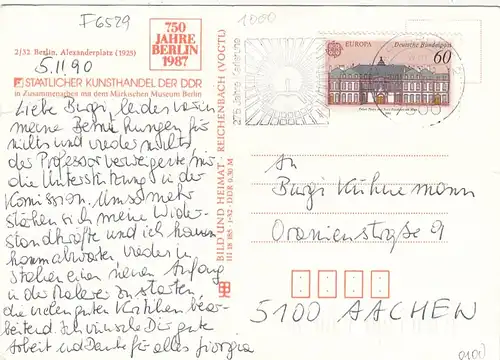 F6529
1000
750
JAHRE
BERLIN
1987
2/32 Berlin, Alexanderplatz (1925)
5.11.90
STAATLICHER KUNSTHANDEL DER DDR
in Zusammenarbeit mit dem Märkischen Museum Berlin
Liebe Burgi, leider waren
meine Bemühungen für
nichts und wieder nichts
der Professor verweigerte mir
die Unterstützung in der
Komission. Umso mehr
stärken sich meine Wider-
standskräfte und ich kann
kaum abwarten wieder in
Italien einen neuen Anfang
in der Malerei zu starten
die vielen guten Kritiken bear-
beitend. Ich wünsche Dir gute
Arbeit und Danke für alles Giorgia
BILD UND HEIMAT · REICHENBACH (VOGTL)
DDR 0,30 M
275 Jahre Karlsruhe
EUROPA
Deutsche Bundespost
60
An
Burgi Kühnemann
Oranienstraße 9
5100 AACHEN